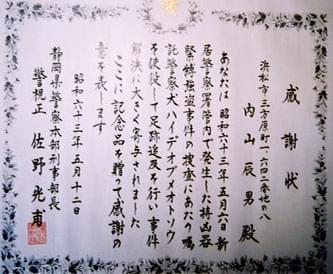 感謝状
浜松市三方原町一六四二番地ノ八
内山辰男殿
あなたは昭和六十三年五月六日新
居警察署管内で発生した持凶器
緊縛強盗事件の捜査にあたり嘱
託警察犬ハイデオブメオトソウ
を使役して足跡追及を行い事件
解決に大きく寄与されました
ここに記念品を贈って感謝の
意を表します
昭和六十三年五月十二日
静岡県警察本部刑事部長
警視正 佐野光甫